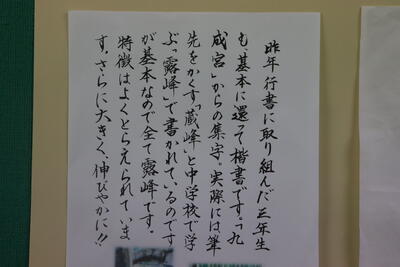 昨年行書に取り組んだ三年生
も、基本に還って楷書です。「九
成宮」からの集字。実際には筆
先をかくす「蔵峰」と中学校で学
ぶ、「露峰」で書かれているのです
が基本なので全て露峰です。
特徴はよくとらえられていま
す。さらに大きく、伸びやかに!!